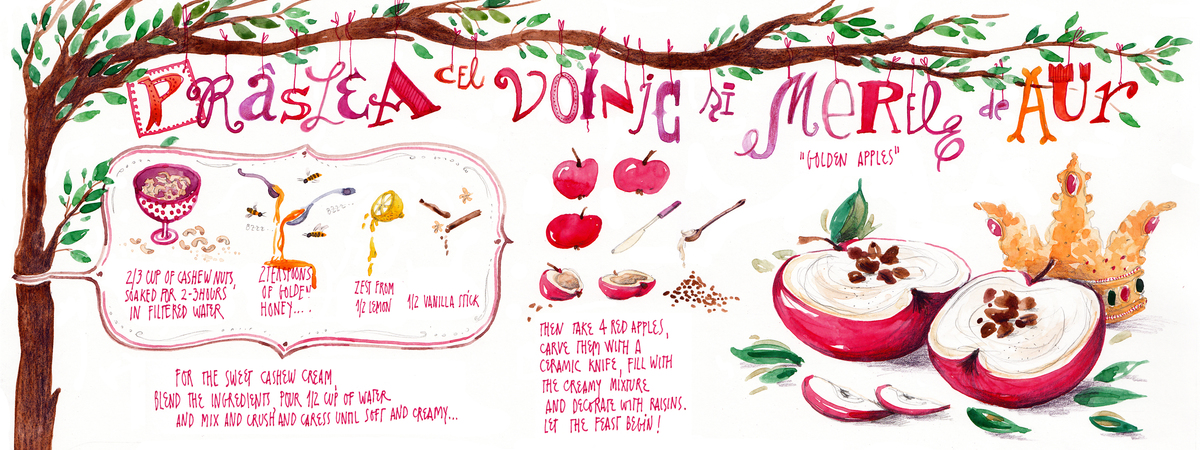 PRÂSLEA CEL VOINIC ȘI MERELE de AUR
"GOLDEN APPLES"
BZZZ...
BZZZ...
2/3 CUP OF CASHEW NUTS,
SOAKED FOR 2-3 HOURS
IN FILTERED WATER
2 TEASPOONS
OF GOLDEY
HONEY....
ZEST FROM
1/2 LEMON
1/2 VANILLA STICK
FOR THE SWEET CASHEW CREAM,
BLEND THE INGREDIENTS. POUR 1/2 CUP OF WATER
AND MIX AND CRUSH AND CARESS UNTIL SOFT AND CREAMY...
THEN TAKE 4 RED APPLES,
CARVE THEM WITH A
CERAMIC KNIFE, FILL WITH
THE CREAMY MIXTURE
AND DECORATE WITH RAISINS.
LET THE FEAST BEGIN!